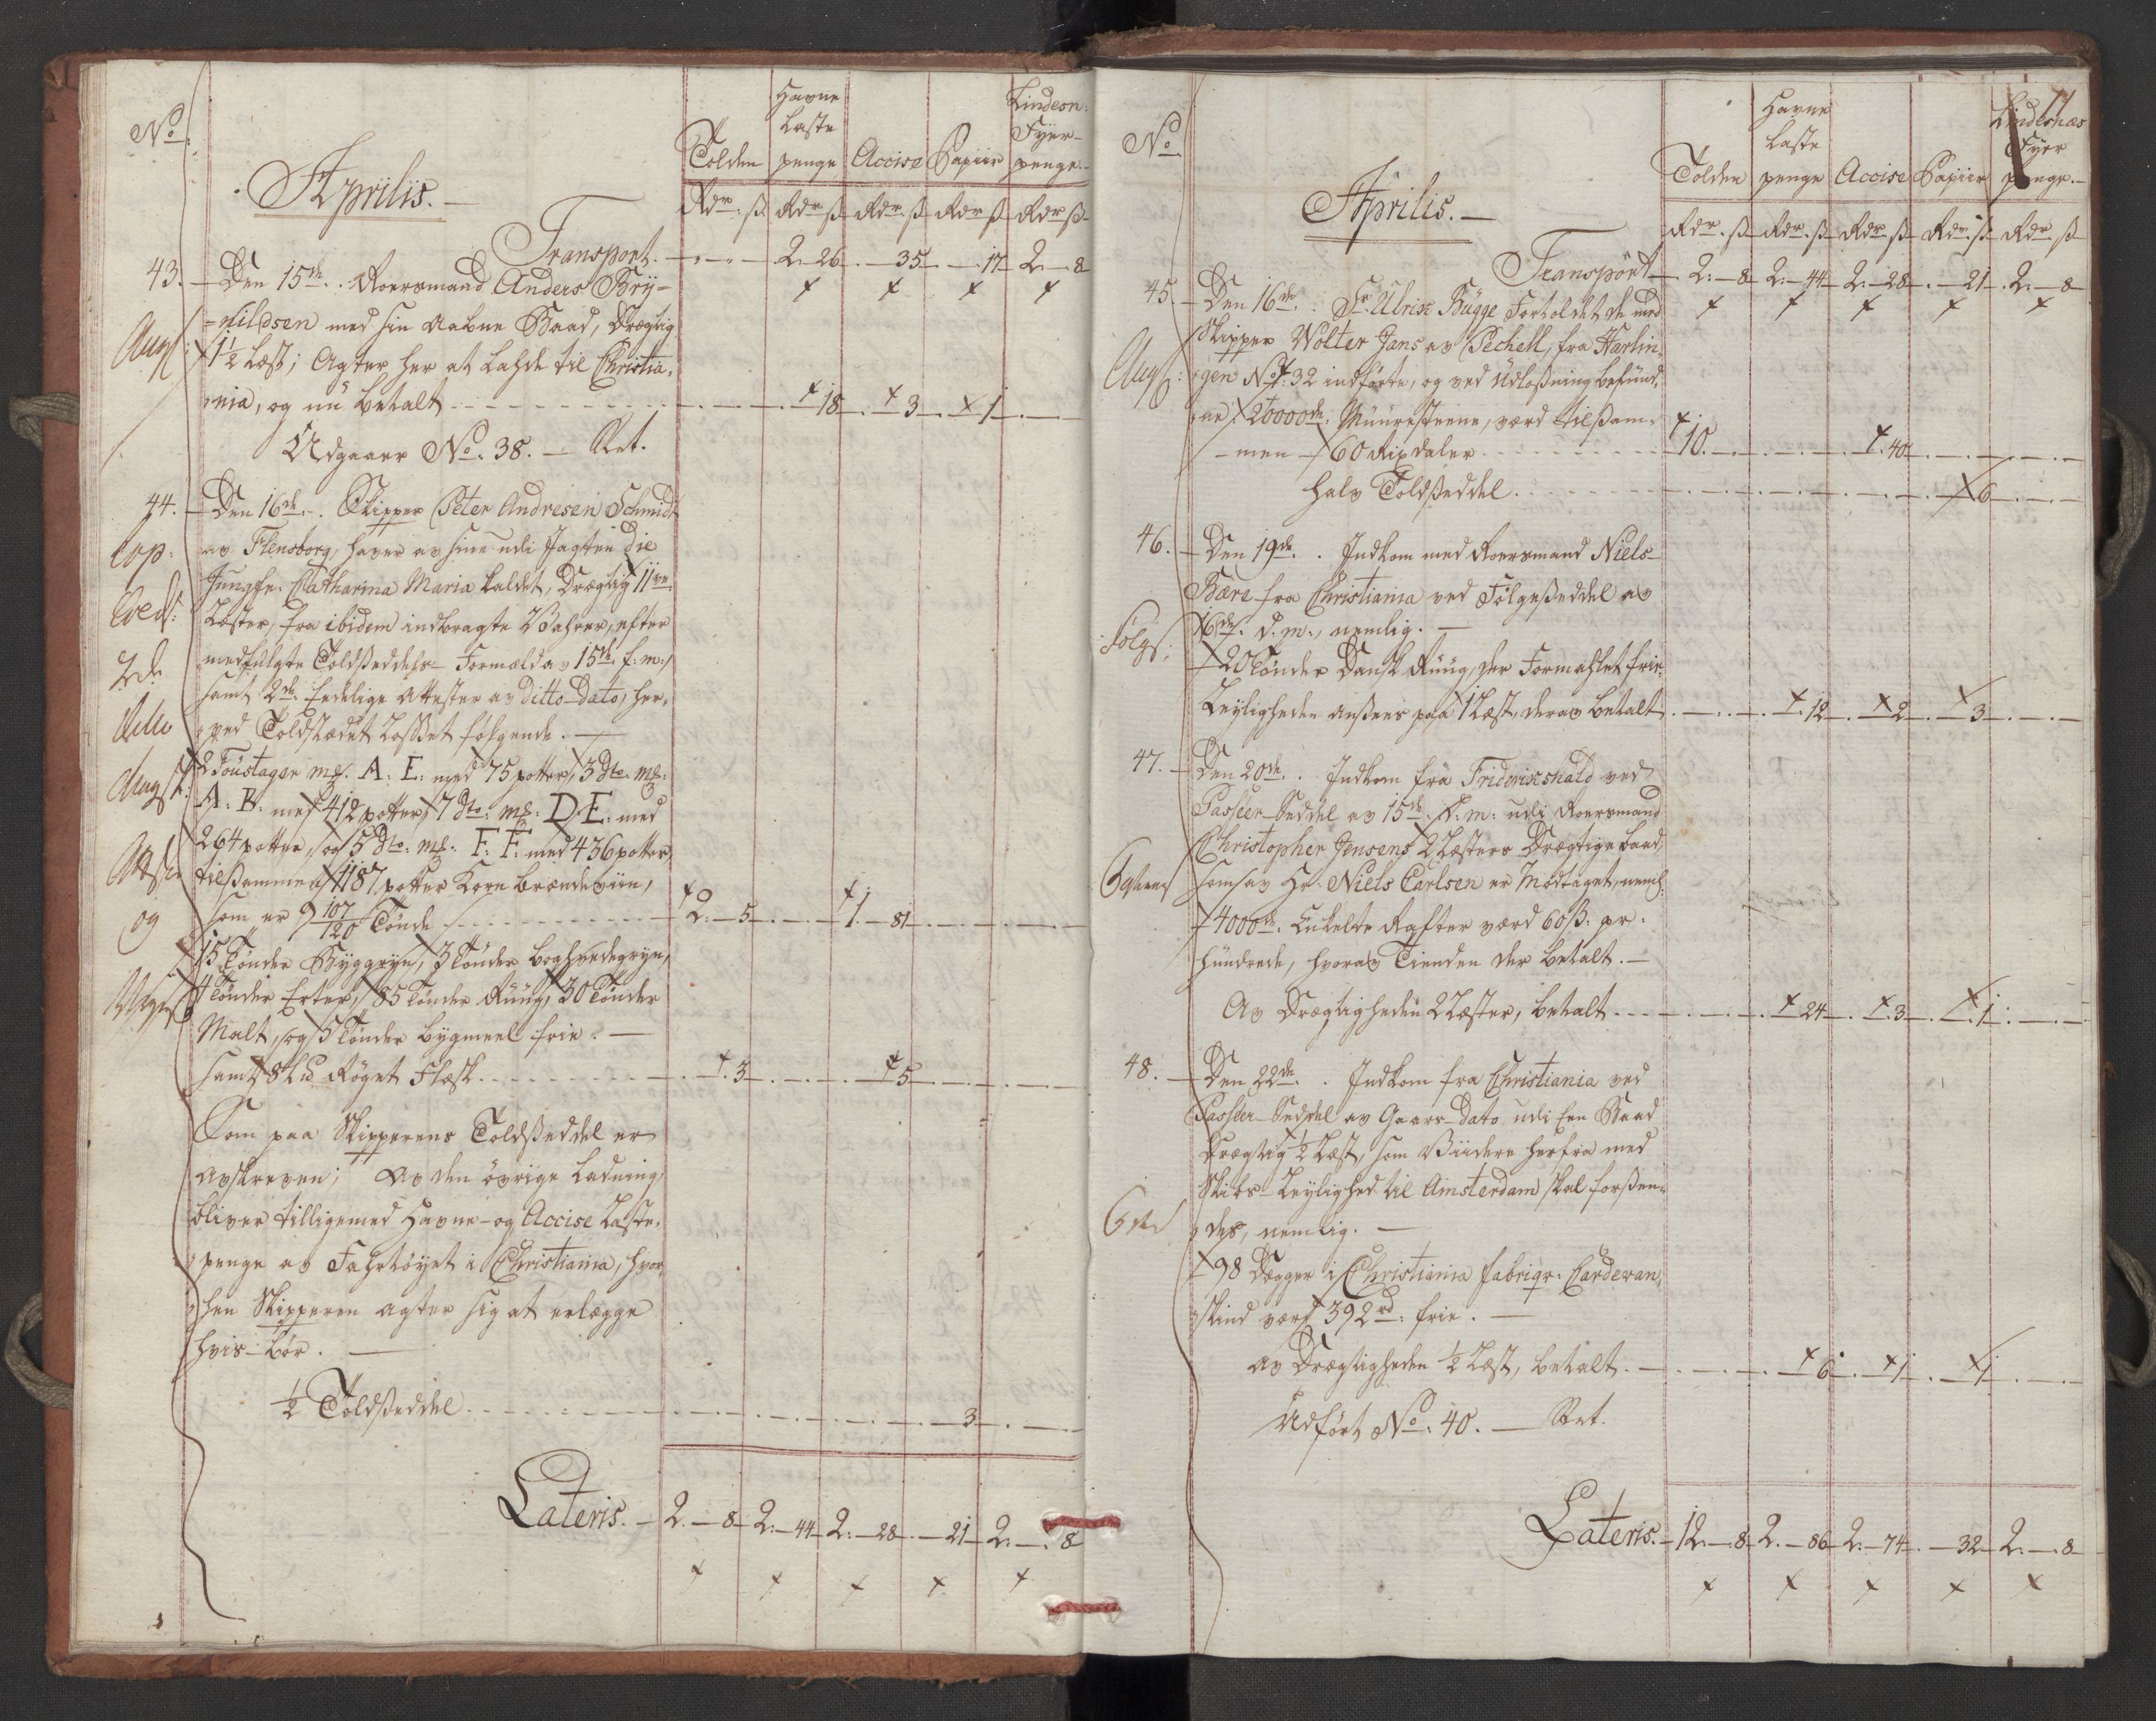 No.
Aprilis.
Tolden
Havne
Laste
penge
Accise
Papiir
Lindesn:
Fyer-
penge.
Rdr. ß. Rdr ß Rdr. ß Rdr ß Rdr ß
Transport. 2. 26. 35. 17 2. 8
43. Den 15de. Roersmand Anders Bry-
=nildsen med sin Aabne Baad, Drægtig
1½ Læst; Agter her at Lahde til Christia-
nia, og nu betalt 18. 3. 1.
Udgaaer No. 38. Ret.
44. Den 16de. Skipper Peter Andresen Schmidt
av Flensborg, haver av sine udi Jagten Die
Jungfr: Catharina Maria kaldet, Drægtig 11ve
Læster, fra ibidem indbragte Vahrer, efter
medfulgte Toldseddels Formæld av 15de f: m:
samt 2de Eedelige Attester av Ditto Dato, her
ved Toldstædet Losset følgende.
2 Foustager mk. A: E: med 75 potter, 3 Dto. mk:
A: B: med 412 potter, 7 dto: mk: D.E: med
264 potter, og 5 Dto: mk: F: F: med 436 potter,
tilsammen 1187 potter Korn brændeviin,
som er 9 107/120 Tønde 2. 5. 1. 81
15 Tønder Byggryn, 3 Tønder boghvedegryn,
4 Tønder Erter, 85 Tønder Rüug, 30 Tønder
Malt, og 5 Tønder bygmeel frie.
samt 8 Ld Røget Flæsk 3. 5
Som paa Skipperens Toldseddel er
avskreven; Av den øvrige Ladning,
bliver tilligemed Havne- og Accise Laste-
penge av Fahrtøyet i Christiania, hvor-
hen Skipperen agter sig at erlægge
hvis bør.
½ Toldseddel 3
Lateris. 2. 8 2. 44 2. 28. 21 2. 8
11
No.
Aprilis.
Tolden
Havne
Laste
penge
Accise
Papiir
Lindesnæs
Fyer
penge.
Rdr. ß Rdr. ß Rdr. ß Rdr. ß Rdr ß
Transport 2. 8 2. 44 2. 28. 21. 2. 8
45. Den 16de. Sr. Ulrik Bügge Fortoldet de med
Skipper Wolter Jans av Pechell, fra Harlin-
gen No. 32 indførte, og ved Udlosning befund-
ne 20000de Müürsteene, værd tilsam-
men 60 Rixdaler 10. 40
halv Toldseddel 6
46. Den 19de. Indkom med Roersmand Niels
Bære fra Christiania ved Følgeseddel av
16de d. m., nemlig.
Følgs:
20 Tønder Dansk Rüüg, der Formahlet frie.
Leyligheden ansees paa 1 Læst, derav betalt 12. 2. 3
47. Den 20de. Indkom fra Fridrixshald ved
Passeer-Seddel av 15de d: m: udi Roersmand
Christopher Jensens 2 Læsters Drægtige baad,
som av Hr. Niels Carlsen er Modtaget, neml:
4000de. Enkelte Rafter værd 60 ß: pr:
hündrede, hvorav Tienden der betalt.
Av Drægtigheden 2 Læster, betalt 24. 3. 1.
48. Den 22de. Indkom fra Christiania ved
Passeer-Seddel av Gaars Dato, udi Een Baad
Drægtig ½ Læst, som Viidere herfra med
Skibs-Leylighed til Amsterdam skal forsen-
des, nemlig.
98 Degger i Christiania fabriqr. Carduan-
skind værd 392 rd: frie.
av Drægtigheden ½ Læst, betalt 6. 1. 1
Udført No. 40. Ret.
Lateris. 12. 8 2. 86 2. 74. 32 2. 8